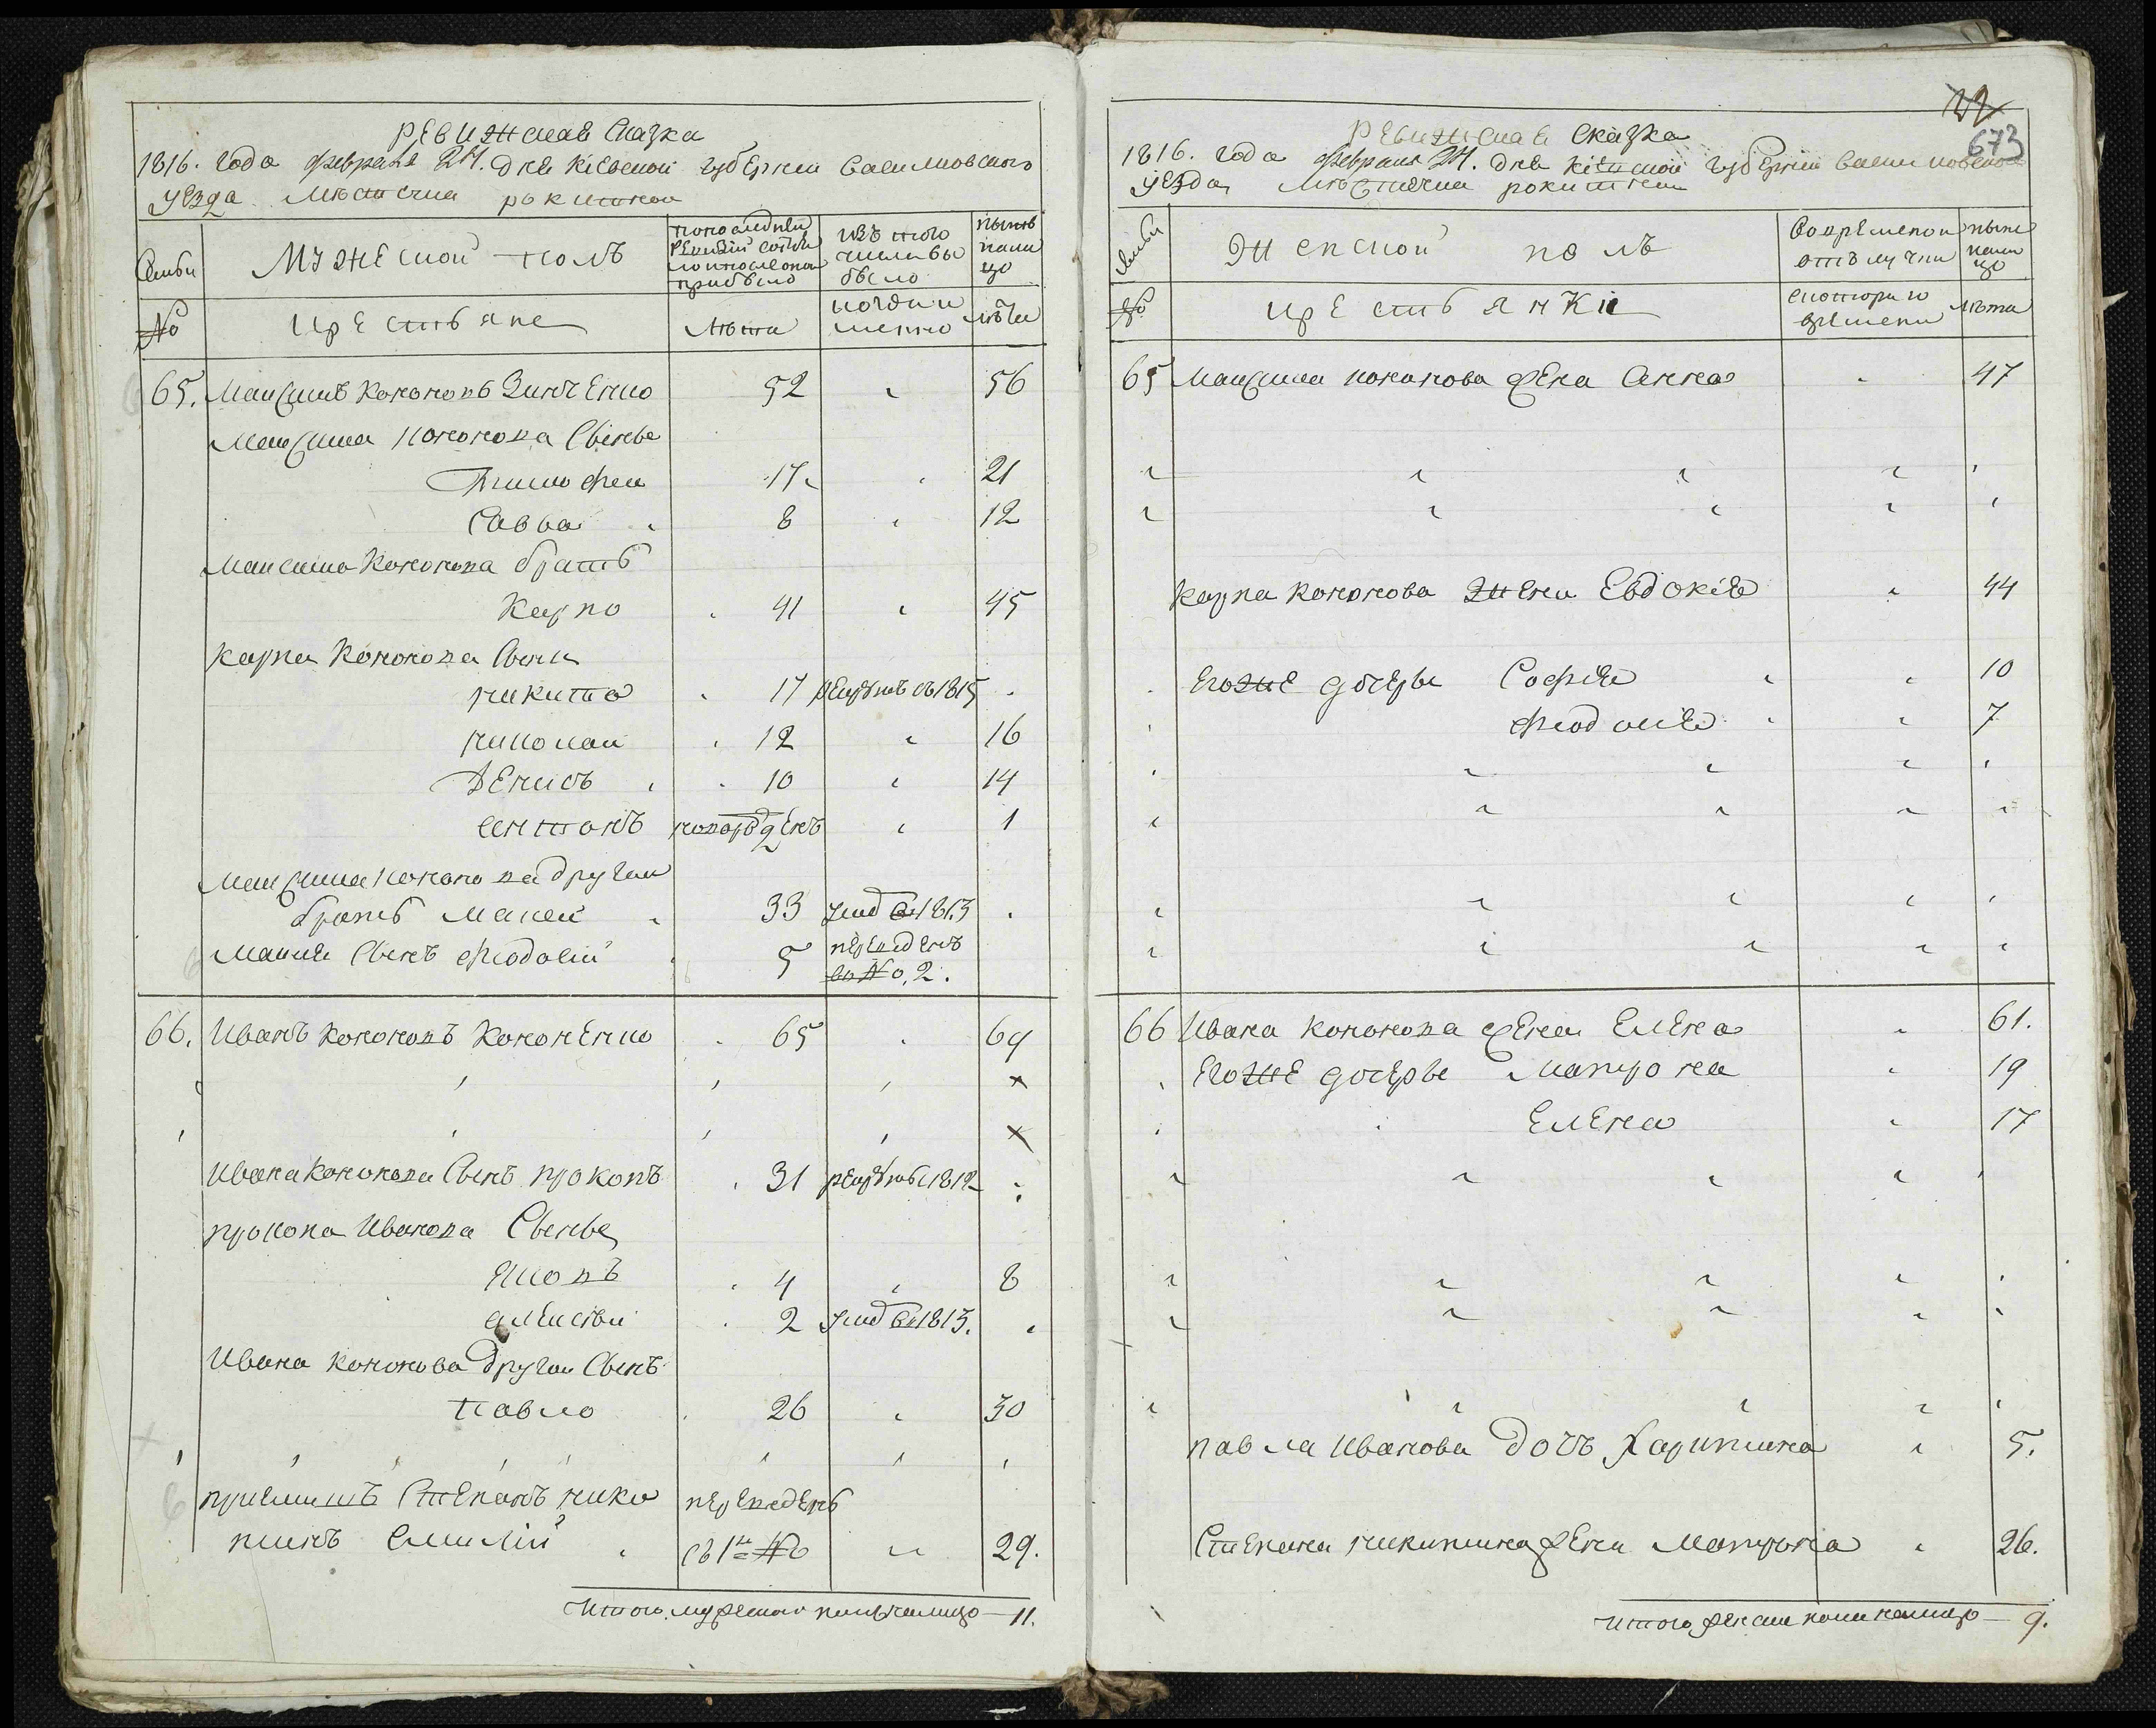 Ревизская Сказка
1816. года февраля 24. дня Кіевской губерніи Василковского
уезда Мѣстечка ракитной
Семьи
Мужеской полъ
по последней ревизіи состояло и после оной прибыло
изъ того числа выбыло
нынѣ на лицо
№
крестьяне
Лѣта
когда имянно
лѣта
65. Максимъ Кононовъ Зинченко 52 56
Максима Кононова Сыновья
Тимофей 17 21
Савва 8 12
Максима Кононова братъ
Карпо 41 45
Карпа Кононова Сыны
никита 17 рекрутъ съ 1815
николай 12 16
Денисъ 10 14
антонъ новорожденъ 1
Максима Кононова другой
братъ Макей 33 умеръ в 1813
Макея Сынъ Феодосій 5 переведенъ
во № 2.
66. Иванъ Кононовъ Кононенко 65 69
Ивана Кононова Сынъ прокопъ 31 рекрутъ с 1812
прокопа Иванова Сыновья
Яковъ 4 8
алексѣй 2 умеръ в 1813.
Ивана Кононова другой Сынъ
павло 26 30
приемышъ Степанъ ники переведенъ
тинъ съ 1го № 29.
Итого мужеска полу на лицо 11.
22
673
Ревизская Сказка
1816. года февраля 24. дня Кіевской губерніи Василковского
уезда Мѣстечка ракитной
Семьи
Женской полъ
во временной отлучки
ныне на лицо
№
крестьянки
с которого времени
лѣта
65 Максима Кононова жена Анна 47
Карпа Кононова жена Евдокія 44
Егоже дочеры Софія 10
Феодосія 7
66 Ивана Кононова жена Елена 61.
Егоже дочеры Матрона 19
Елена 17
павла Иванова дочъ Харитина 5.
Степана никитина жена Матрона 26.
Итого женска полу на лицо 9.